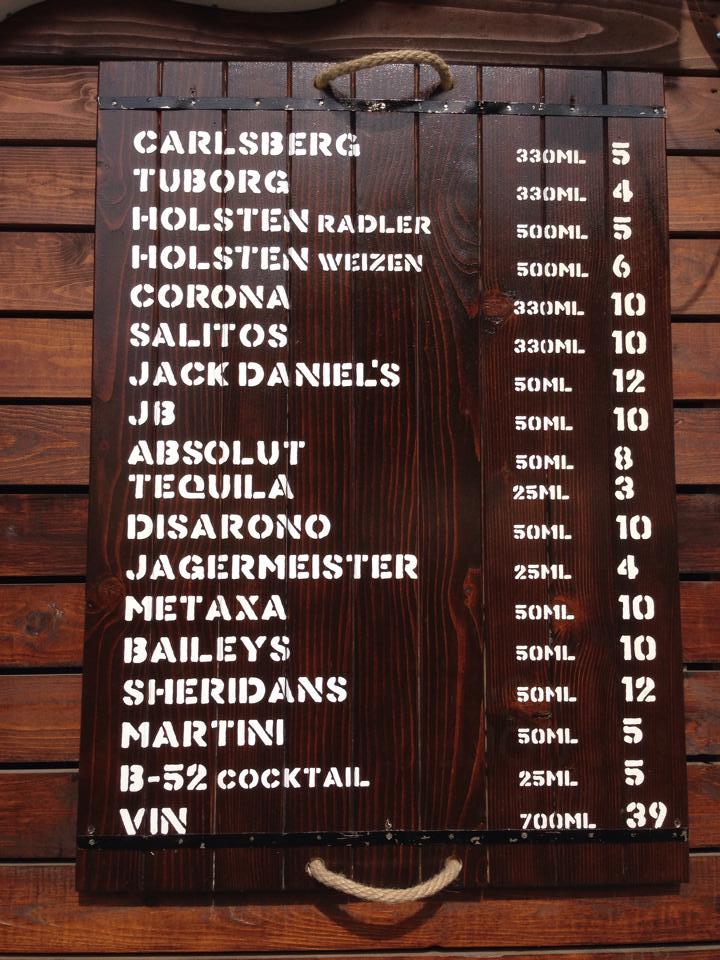 CARLSBERG 330ML 5
TUBORG 330ML 4
HOLSTEN RADLER 500ML 5
HOLSTEN WEIZEN 500ML 6
CORONA 330ML 10
SALITOS 330ML 10
JACK DANIEL'S 50ML 12
JB 50ML 10
ABSOLUT 50ML 8
TEQUILA 25ML 3
DISARONO 50ML 10
JAGERMEISTER 25ML 4
METAXA 50ML 10
BAILEYS 50ML 10
SHERIDANS 50ML 12
MARTINI 50ML 5
B-52 COCKTAIL 25ML 5
VIN 700ML 39